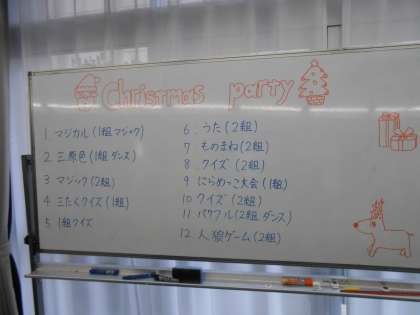 Christmas party
1. マジカル(1組 マジック)
2. 三原色(1組 ダンス)
3 マジック(2組)
4 三たくクイズ(1組)
5. 1組クイズ
6. うた(2組)
7 ものまね(2組)
8 クイズ(2組)
9 にらめっこ大会(1組)
10 クイズ(2組)
11 パワフル(2組 ダンス)
12 人狼ゲーム(2組)